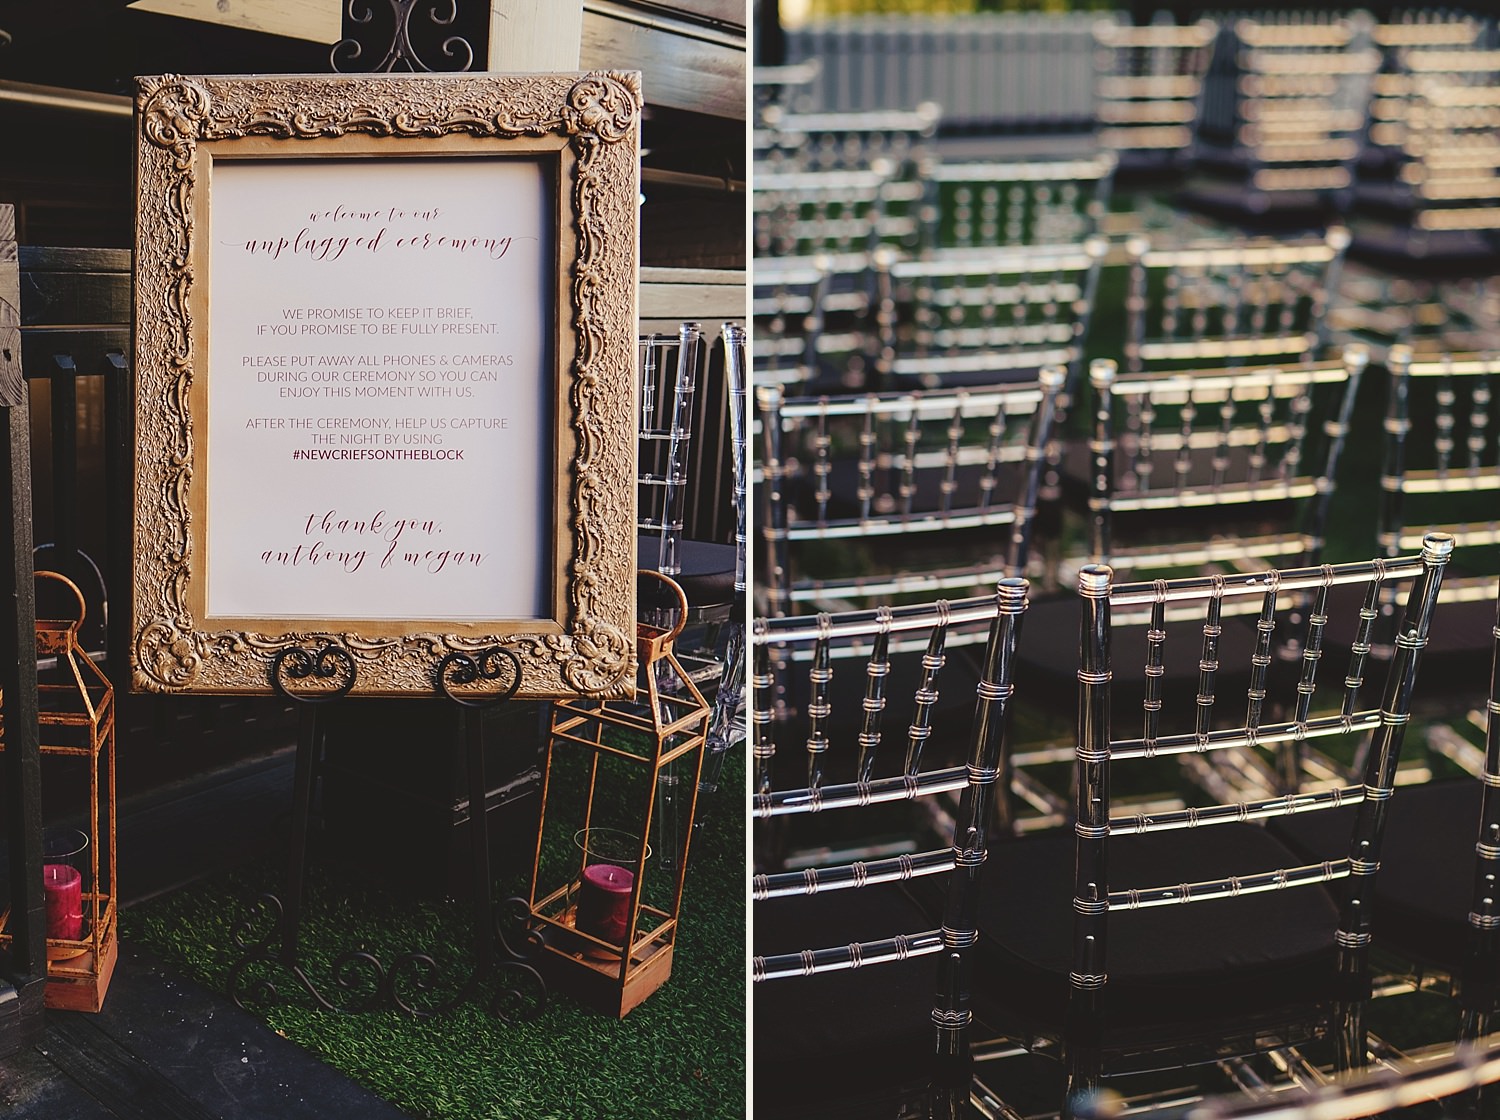 welcome to our
unplugged ceremony
WE PROMISE TO KEEP IT BRIEF,
IF YOU PROMISE TO BE FULLY PRESENT.
PLEASE PUT AWAY ALL PHONES & CAMERAS
DURING OUR CEREMONY SO YOU CAN
ENJOY THIS MOMENT WITH US.
AFTER THE CEREMONY, HELP US CAPTURE
THE NIGHT BY USING
#NEWCRIEFSONTHEBLOCK
thank you,
anthony & megan